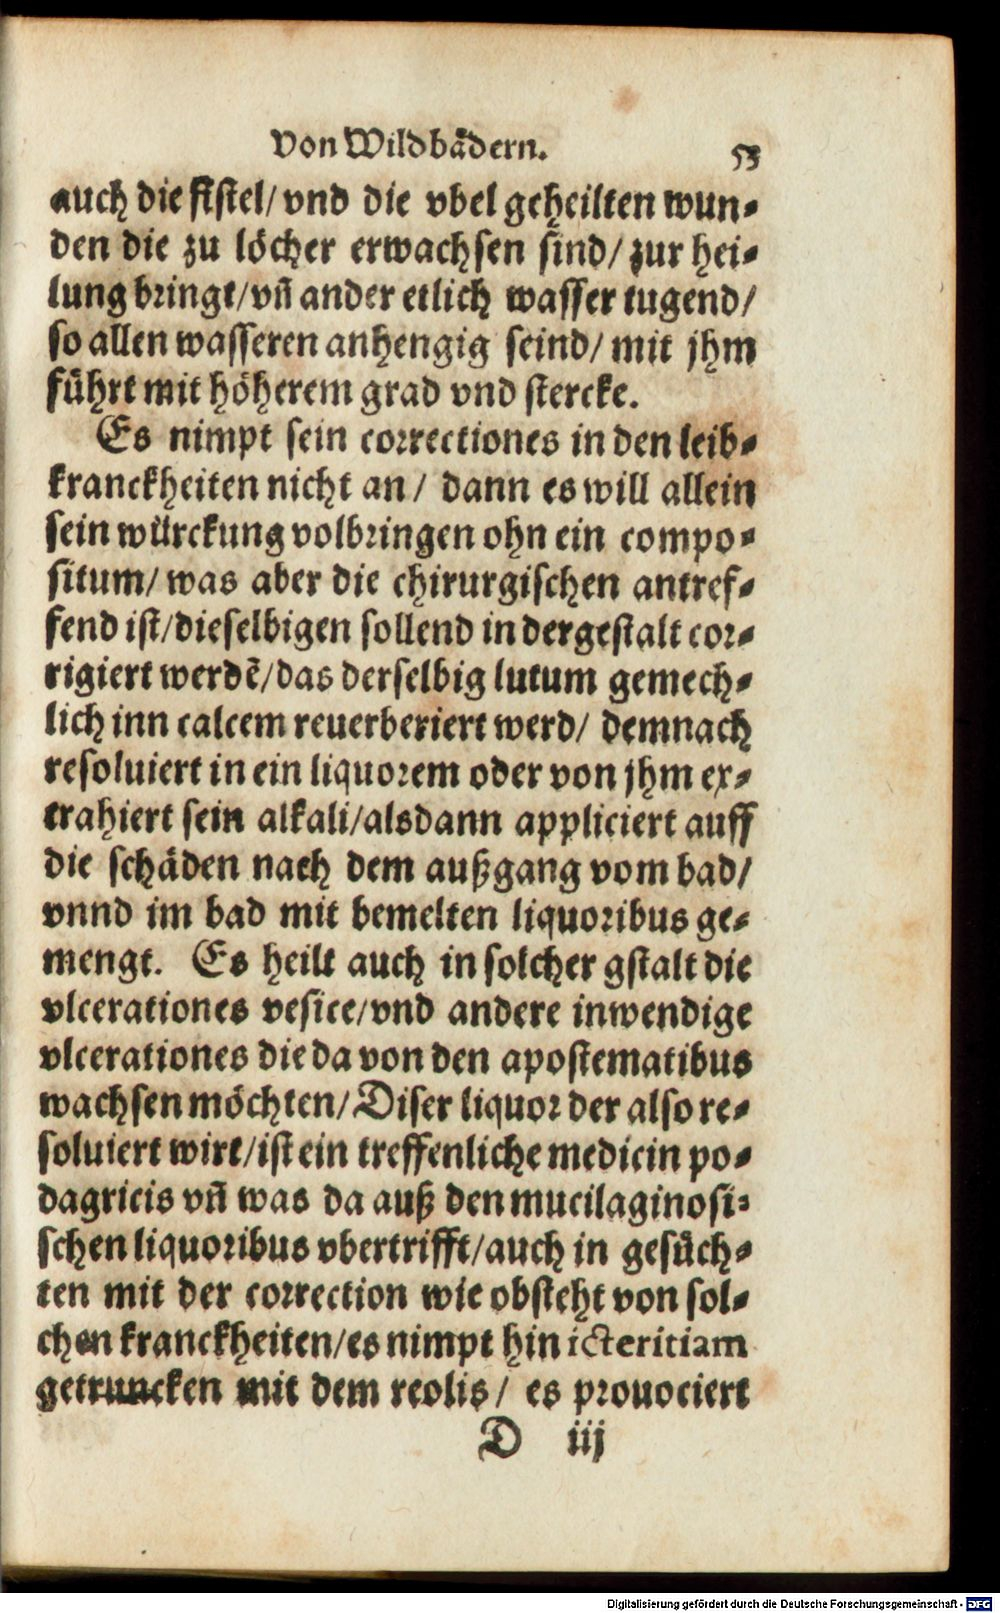 Von Wildbädern. 53
auch die fistel/ vnd die vbel geheilten wun-
den die zu löcher erwachsen sind/ zur hei-
lung bringt/ vñ ander etlich wasser tugend/
so allen wasseren anhengig seind/ mit jhm
führt mit höherem grad vnd stercke.
Es nimpt sein correctiones in den leib-
kranckheiten nicht an/ dann es will allein
sein würckung volbringen ohn ein compo-
situm/ was aber die chirurgischen antref-
fend ist/ dieselbigen sollend in dergestalt cor-
rigiert werdē/ das derselbig lutum gemech-
lich inn calcem reuerberiert werd/ demnach
resoluiert in ein liquorem oder von jhm ex-
trahiert sein alkali/ alsdann appliciert auff
die schäden nach dem außgang vom bad/
vnnd im bad mit bemelten liquoribus ge-
mengt. Es heilt auch in solcher gstalt die
vlcerationes vesice/ vnd andere inwendige
vlcerationes die da von den apostematibus
wachsen möchten/ Diser liquor der also re-
soluiert wirt/ ist ein treffenliche medicin po-
dagricis vñ was da auß den mucilaginosi-
schen liquoribus vbertrifft/ auch in gesüch-
ten mit der correction wie obsteht von sol-
chen kranckheiten/ es nimpt hin icteritiam
getruncken mit dem reolis/ es prouociert
D iij
Digitalisierung gefördert durch die Deutsche Forschungsgemeinschaft - DFG